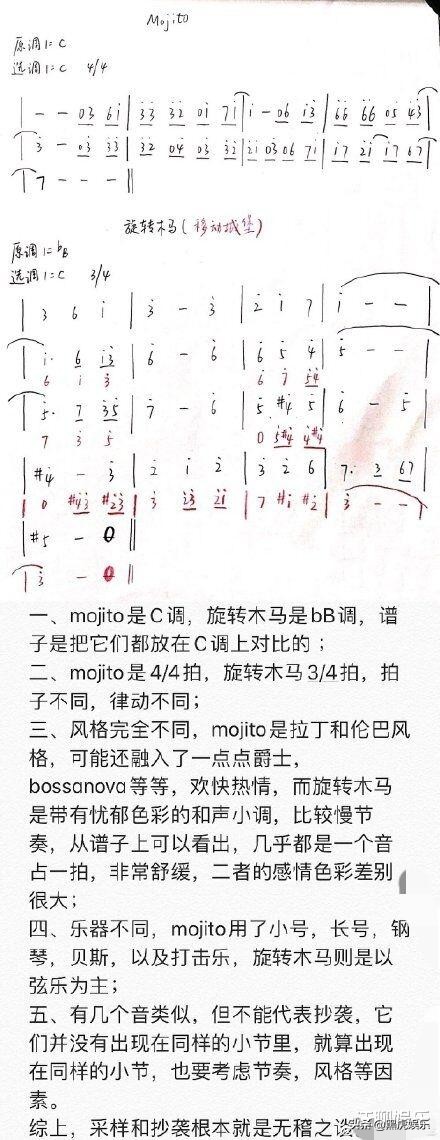 Mojito
原调1=C
选调1=C 4/4
| - - 03 6i | 33 32 01 7i | i - 06 i3 | 66 66 05 43 |
| 3 - 03 33 | 32 04 03 32 | 2i 03 06 7i | i7 2i i7 67 |
| 7 - - - ||
旋转木马(移动城堡)
原调1=bB
选调1=C 3/4
| 3 6 i | 3 - 3 | 2 i 7 | i - - |
| i. 6 i3 | 6 - 6 | 6 5 4 | 5 - - |
6 i 3 6 7 54
| 5. 7 35 | 7 - 6 | 5 #4 5 | 6 - 5 |
7 3 5 0 5#4 4#4
| #4 - 3 | 2 i 2 | 3 2 6 | 7. 3 67 |
| 0 #43 #23 | 3 23 2i | 7 #i #2 | 3 - - |
| #5 - 0 ||
| 3 - 0 ||
一、mojito是C调，旋转木马是bB调，谱
子是把它们都放在C调上对比的；
二、mojito是4/4拍，旋转木马3/4拍，拍
子不同，律动不同；
三、风格完全不同，mojito是拉丁和伦巴风
格，可能还融入了一点点爵士，
bossanova等等，欢快热情，而旋转木马
是带有忧郁色彩的和声小调，比较慢节
奏，从谱子上可以看出，几乎都是一个音
占一拍，非常舒缓，二者的感情色彩差别
很大；
四、乐器不同，mojito用了小号，长号，钢
琴，贝斯，以及打击乐，旋转木马则是以
弦乐为主；
五、有几个音类似，但不能代表抄袭，它
们并没有出现在同样的小节里，就算出现
在同样的小节，也要考虑节奏，风格等因
素。
综上，采样和抄袭根本就是无稽之谈